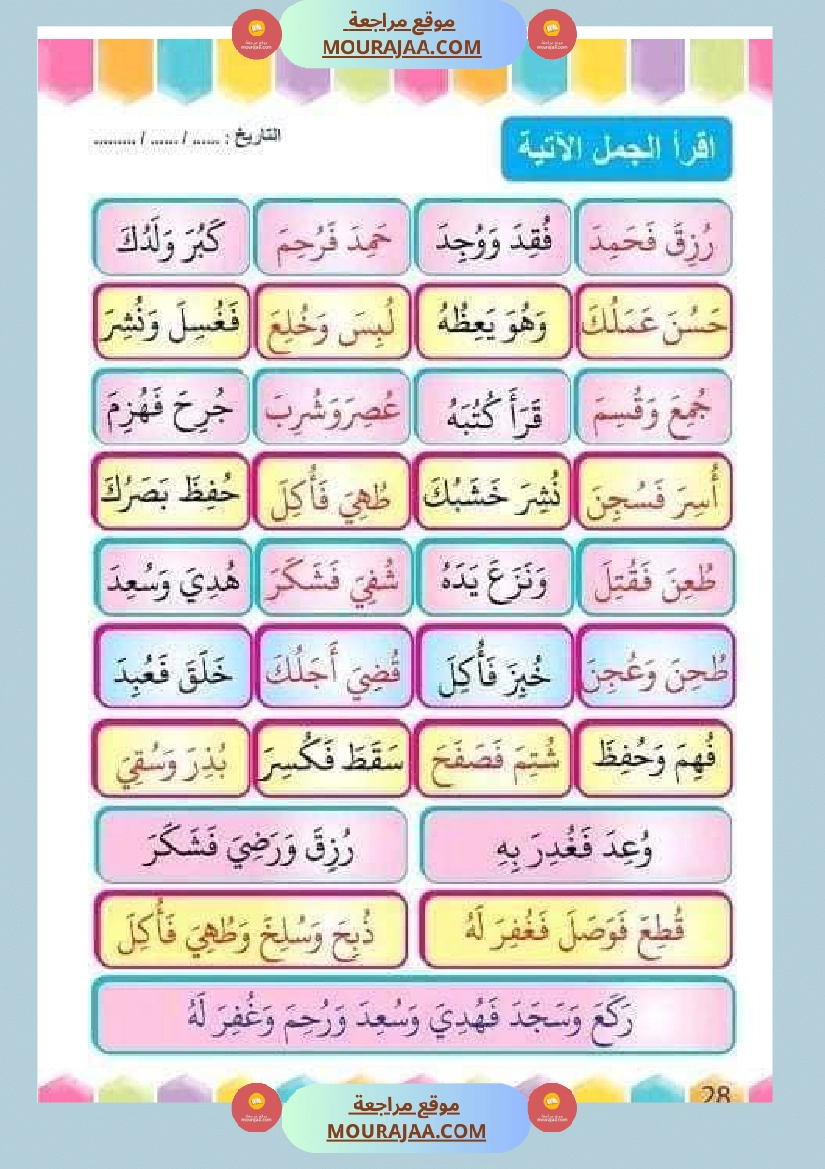 موقع مراجعة
MOURAJAA.COM
اقرأ الجمل الآتية
التاريخ : ...... / ...... / .........
رُزِقَ فَحَمِدَ فُقِدَ وَوُجِدَ حَمِدَ فَرُحِمَ كَبُرَ وَلَدُكَ
حَسُنَ عَمَلُكَ وَهُوَ يَعِظُهُ لُبِسَ وَخُلِعَ فَغُسِلَ وَنُشِرَ
جُمِعَ وَقُسِمَ قَرَأَ كُتُبَهُ عُصِرَ وَشُرِبَ جُرِحَ فَهُزِمَ
أُسِرَ فَسُجِنَ نُشِرَ خَشَبُكَ طُهِيَ فَأُكِلَ حُفِظَ بَصَرُكَ
طُعِنَ فَقُتِلَ وَنَزَعَ يَدَهُ شُفِيَ فَشَكَرَ هُدِيَ وَسُعِدَ
طُحِنَ وَعُجِنَ خُبِزَ فَأُكِلَ قُضِيَ أَجَلُكَ خَلَقَ فَعُبِدَ
فُهِمَ وَحُفِظَ شُتِمَ فَصَفَحَ سَقَطَ فَكُسِرَ بُذِرَ وَسُقِيَ
وُعِدَ فَغُدِرَ بِهِ رُزِقَ وَرَضِيَ فَشَكَرَ
قُطِعَ فَوَصَلَ فَغُفِرَ لَهُ ذُبِحَ وَسُلِخَ وَطُهِيَ فَأُكِلَ
رَكَعَ وَسَجَدَ فَهُدِيَ وَسُعِدَ وَرُحِمَ وَغُفِرَ لَهُ
28
موقع مراجعة
MOURAJAA.COM